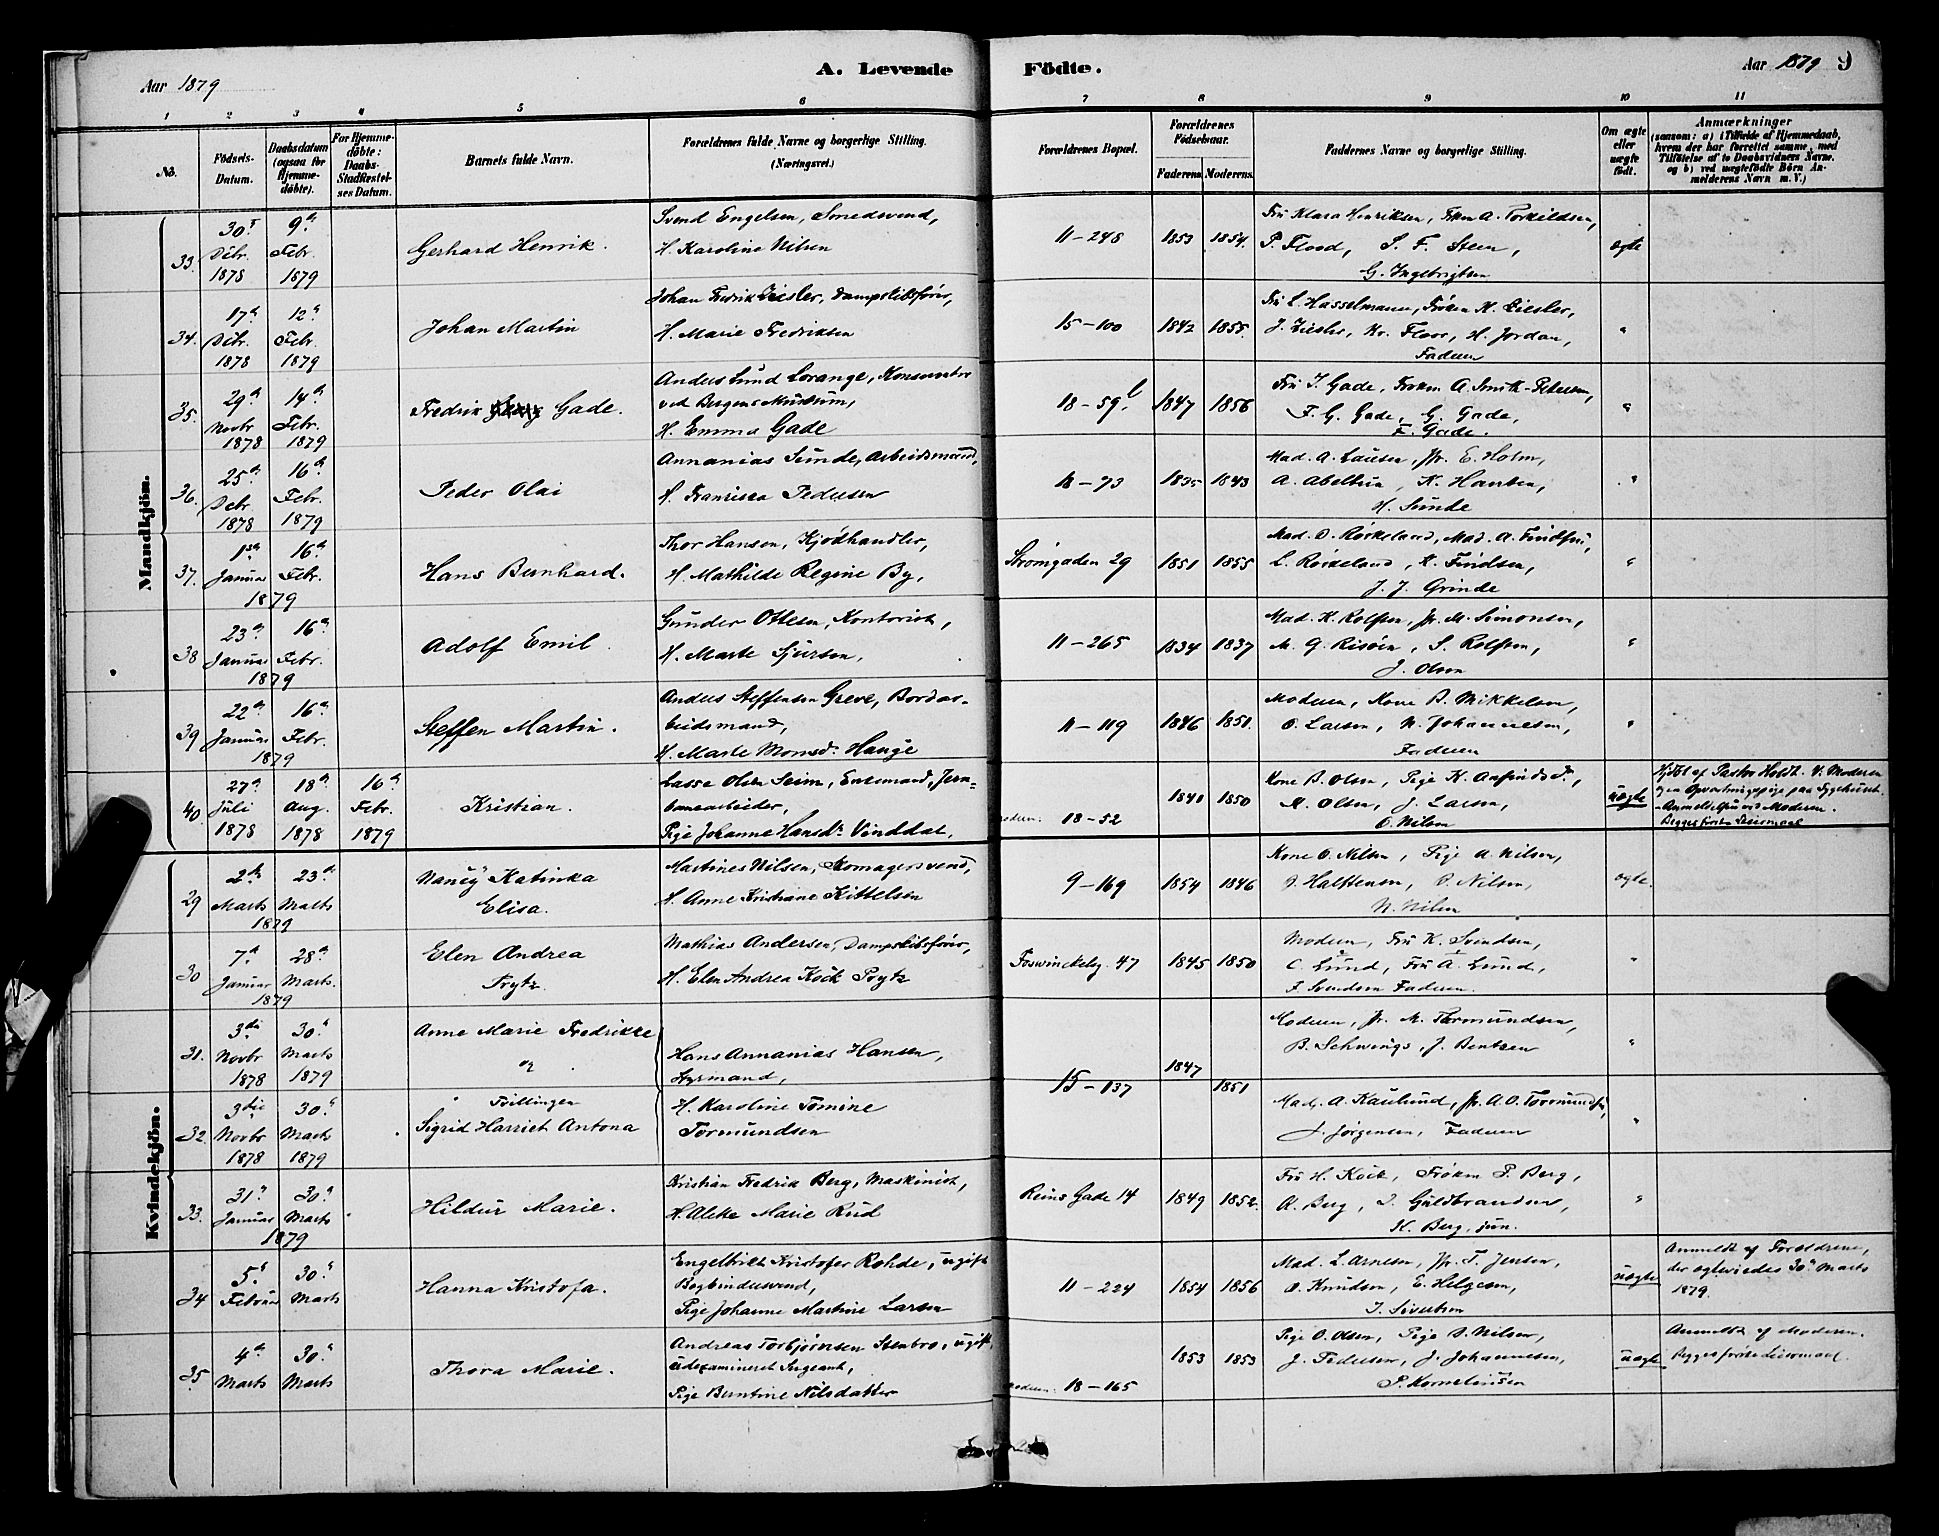 Aar 1879
A. Levende Födte.
Aar 1879 9
1 2 3 4 5 6 7 8 9 10 11
No.
Födsels-Datum.
Daabsdatum (ogsaa for Hjemmedöbte).
For Hjemmedöbte: Daabs-Stadfæstelses Datum.
Barnets fulde Navn.
Forældrenes fulde Navne og borgerlige Stilling. (Næringsvei.)
Forældrenes Bopæl.
Forældrenes Födselsaar.
Faderens. Moderens.
Faddernes Navne og borgerlige Stilling.
Om ægte eller uægte födt.
Anmærkninger
(saasom: a) i Tilfælde af Hjemmedaab, hvem der har forrettet samme, med Tilföielse af to Daabsvidners Navne. og b) ved uægtefödte Börn Anmelderens Navn m. V.)
Mandkjön.
33. 30te Debr. 1878 9de Febr. 1879
Gerhard Henrik.
Svend Engelsen, Smedsvend,
H. Karoline Nilsen
11-248 1853 1854.
Fru Klara Henriksen, Frkn A. Torkildsen,
P. Flood, S. F. Steen,
G. Ingebrigtsen
ægte
34. 17de Debr. 1878 12te Febr. 1879
Johan Martin
Johan Fredrik Ziesler, Dampskibsfører,
H. Marie Fredriksen
15-100 1842 1855.
Fru L. Hasselmann, Frøken K. Ziesler,
J. Ziesler, Kr. Floor, H. Jordan,
Faderen
"
35. 29de Novbr 1878 14de Febr. 1879
Fredrik Gade.
Anders Lund Lorange, Konservator
ved Bergens Museum,
H. Emma Gade
18-59b 1847 1856
Fru I. Gade, Frøken A. Smith-Petersen,
F. G. Gade, G. Gade,
F. Gade.
"
36. 25de Debr. 1878 16de Febr. 1879
Peder Olai
Annanias Sunde, Arbeidsmand,
H. Franciska Pedersen
18-73 1835 1843
Mad. A. Larsen, Jfr. E. Holm,
A. Abelsen, K. Hansen,
H. Sunde
"
37. 1ste Januar 16de Febr. 1879
Hans Bernhard.
Thor Hansen, Kjødhandler,
H. Mathilde Regine By,
Strømgaden 29 1851 1855
Mad. O. Røikeland, Mad. A. Findsen,
L. Røikeland, K. Findsen,
J. J. Grinde
"
38 23de Januar 16de Febr. 1879
Adolf Emil.
Gunder Ottesen, Kontorist,
H. Marte Sjursen,
11-265 1834 1837
Mad. K. Rolfsen, Jfr. M. Simonsen,
M. G. Risøen, S. Rolfsen,
J. Olsen
"
39 22de Januar 16de Febr. 1879
Steffen Martin.
Anders Steffensen Greve, Bordarbeidsmand,
H. Marte Monsdr Hauge
11-119 1846 1851.
Moderen, Kone B. Mikkelsen,
O. Larsen, N. Johannesen,
Faderen
"
40 27de Juli 1878 18de Aug. 1878 16de Febr. 1879
Kristian.
Lasse Olsen Seim, Enkemand, Jernbanearbeider,
Pige Johanne Hansdr Vinddal,
18-52 1840 1850
Kone B. Olsen, Pige K. Arfindsdr.,
K. Olsen, J. Larsen,
O. Nilsen
uægte
Hjdbt af Pastor Holdt. V: Moderen
og en Opvartningspige paa Sygehuset.
Anmeldelse ved Moderen.
Begges første Leiermaal
Kvindekjön.
29 2den Marts 23de Marts 1879
Nancy Katinka
Elisa.
Martines Nilsen, Skomagersvend,
H. Anne Kristiane Kittelsen
9-169 1854 1846
Kone O. Nilsen, Pige A. Nilsen,
J. Halstensen, O. Nilsen,
N. Nilsen
ægte.
30 7de Januar 28de Marts. 1879
Elen Andrea
Prytz.
Mathias Andersen, Dampskibsfører,
H. Elen Andrea Kock Prytz
Foswinckelsg. 47 1845 1850
Moderen, Fru K. Svendsen,
C. Lund, Fru A. Lund,
F. Svendsen Faderen.
"
31. 3die Novbr 1878 30te Marts 1879
Anne Marie Fredrikke
og
Hans Annanias Hansen,
Styrmand,
15-137 1847 1851
Moderen, Jfr. M. Tormundsen,
B. Schwings, J. Bentzen
"
32. 3die Novbr 1878 30te Marts 1879
Tvillinger
Sigrid Harriet Antona
H. Karoline Tomine
Tormundsen
Mad. A. Kaulund, Jfr. A. O. Tormundsen,
J. Jørgensen, Faderen
"
33. 31te Januar 30te Marts 1879
Hildur Marie.
Kristian Fredrik Berg, Maskinist,
H. Alette Marie Rud
Reins Gade 14 1849 1852.
Fru H. Kock, Frøken P. Berg,
A. Berg, I. Guldbrandsen,
H. Berg, jun.
"
34 5te Februar 30te Marts
Hanna Kristofa.
Engelbrikt Kristofer Rohde, ugift
Bogbindersvend,
Pige Johanne Martine Larsen
11-224 1854 1856
Mad. L. Arnesen, Jfr. T. Jensen,
O. Knudsen, E. Helgesen,
J. Sivertsen
uægte
Anmeldt af Forældrene,
der ægteviedes 30te Marts
1879.
35. 4de Marts 30te Marts
Thora Marie.
Andreas Torbjørnsen Stenbro, ugift
udexamineret Sergeant,
Pige Berntine Nilsdatter
18-165 1853 1853
Pige O. Olsen, Pige O. Nilsen,
J. Pedersen, J. Johannesen,
P. Korneliussen
uægte
Anmeldt af Moderen.
Begges første Leiermaal.